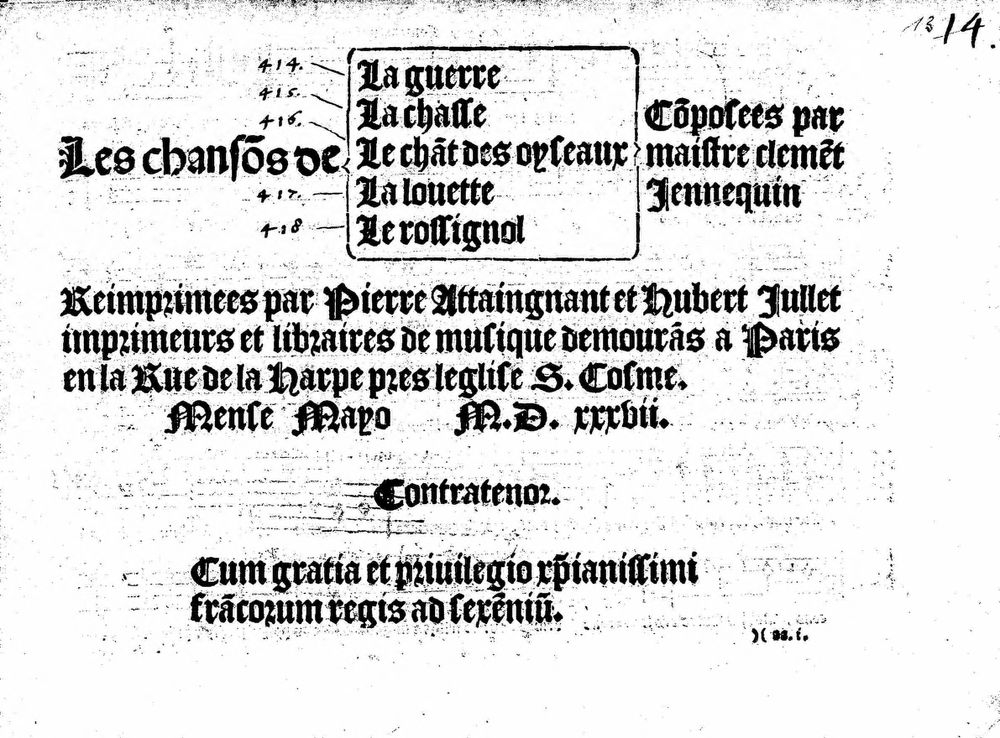 13 14.
414. La guerre
415. La chasse
416. Le chãt des oyseaux
Les chansõs de
417. La louette
418 Le rossignol
Cõposees par
maistre clemẽt
Jennequin
Reimprimees par Pierre Attaingnant et Hubert Jullet
imprimeurs et libraires de musique demourãs a Paris
en la Rue de la Harpe pres leglise S. Cosme.
Mense Mayo M.D. xxxvii.
Contratenor.
Cum gratia et priuilegio xp̃ianissimi
frãcorum regis ad sexẽniũ.
)( aa.i.